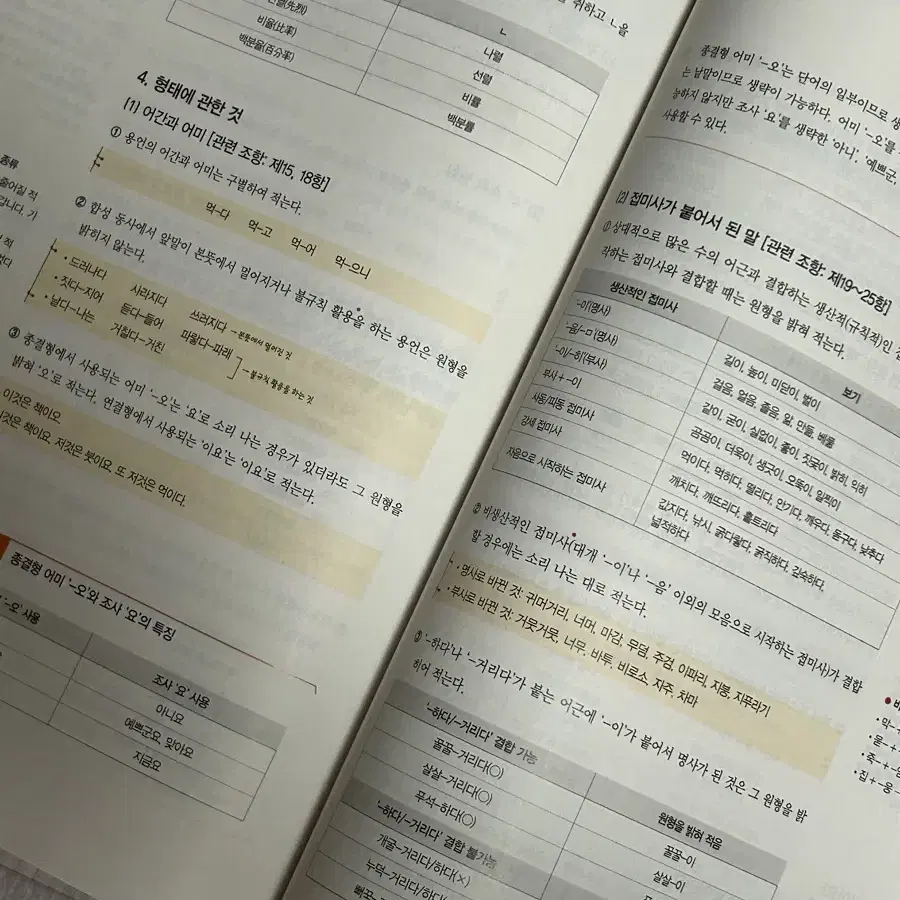 취하고 ㄴ을
ㄴ
나열
비율(比率) 선열
백분율(百分率) 비율
백분률
4. 형태에 관한 것
[1] 어간과 어미 [관련 조항: 제15, 18항]
① 용언의 어간과 어미는 구별하여 적는다.
먹-다 먹-고 먹-어 먹-으니
② 합성 동사에서 앞말이 본뜻에서 멀어지거나 불규칙 활용을 하는 용언은 원형을
밝히지 않는다.
• 드러나다 사라지다 쓰러지다 -본뜻에서 멀어진 것
• 짓다-지어 듣다-들어 파랗다-파래
• 날다-나는 거칠다-거친 -불규칙 활용을 하는 것
③ 종결형에서 사용되는 어미 '-오'는 '요'로 소리 나는 경우가 있더라도 그 원형을
밝혀 '오'로 적는다. 연결형에서 사용되는 '이요'는 '이요'로 적는다.
이것은 책이오.
이것은 책이요, 저것은 붓이요, 또 저것은 먹이다.
종결형 어미 '-오'와 조사 '요'의 특징
'-오' 사용 조사 '요' 사용
아니요
예쁘군요, 맞아요
지금요
種類
줄어질 적
적
종결형 어미 '-오'는 단어의 일부이므로
는 낱말이므로 생략이 가능하다. 어미 '-오'를
능하지 않지만 조사 '요'를 생략한 '아니', '예쁘군,
사용할 수 있다.
[2] 접미사가 붙어서 된 말 [관련 조항: 제19~25항]
① 상대적으로 많은 수의 어근과 결합하는 생산적(규칙적)인
작하는 접미사와 결합할 때는 원형을 밝혀 적는다.
생산적인 접미사 보기
-이(명사) 길이, 높이, 미닫이, 벌이
-음/-ㅁ(명사) 걸음, 얼음, 졸음, 앎, 만듦, 베풂
-이/-히(부사) 같이, 굳이, 실없이, 좋이, 짓궂이, 밝히, 익히
부사+-이 곰곰이, 더욱이, 생긋이, 오뚝이, 일찍이
사동/피동 접미사 먹이다, 먹히다, 딸리다, 안기다, 깨우다, 돋구다, 낮추다
강세 접미사 깨치다, 깨뜨리다, 훌트리다
자음으로 시작하는 접미사 값지다, 낚시, 굵다랗다, 굵직하다, 깊숙하다,
넓적하다
② 비생산적인 접미사(대개 '-이'나 '-음' 이외의 모음으로 시작하는 접미사)가 결합
할 경우에는 소리 나는 대로 적는다.
• 명사로 바뀐 것: 귀머거리, 너머, 마감, 무덤, 주검, 이파리, 지붕, 지푸라기
• 부사로 바뀐 것: 거뭇거뭇, 너무, 바투, 비로소, 자주, 차마
③ '-하다'나 '-거리다'가 붙는 어근에 '-이'가 붙어서 명사가 된 것은 그 원형을 밝
히어 적는다.
'-하다/-거리다' 결합 가능 원형을 밝혀 적음
꿀꿀-거리다(○) 꿀꿀-이
살살-거리다(○) 살살-이
푸석-하다(○)
'-하다/-거리다' 결합 불가능
개굴-거리다/하다(×)
누덕-거리다/하다